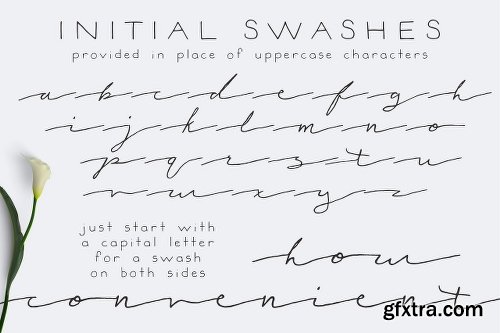 INITIAL SWASHES
provided in place of uppercase characters
a b c d e f g h
i j k l m n o
p q r s t u
v w x y z
just start with
a capital letter
for a swash
on both sides
how
convenient
gfxtra.com